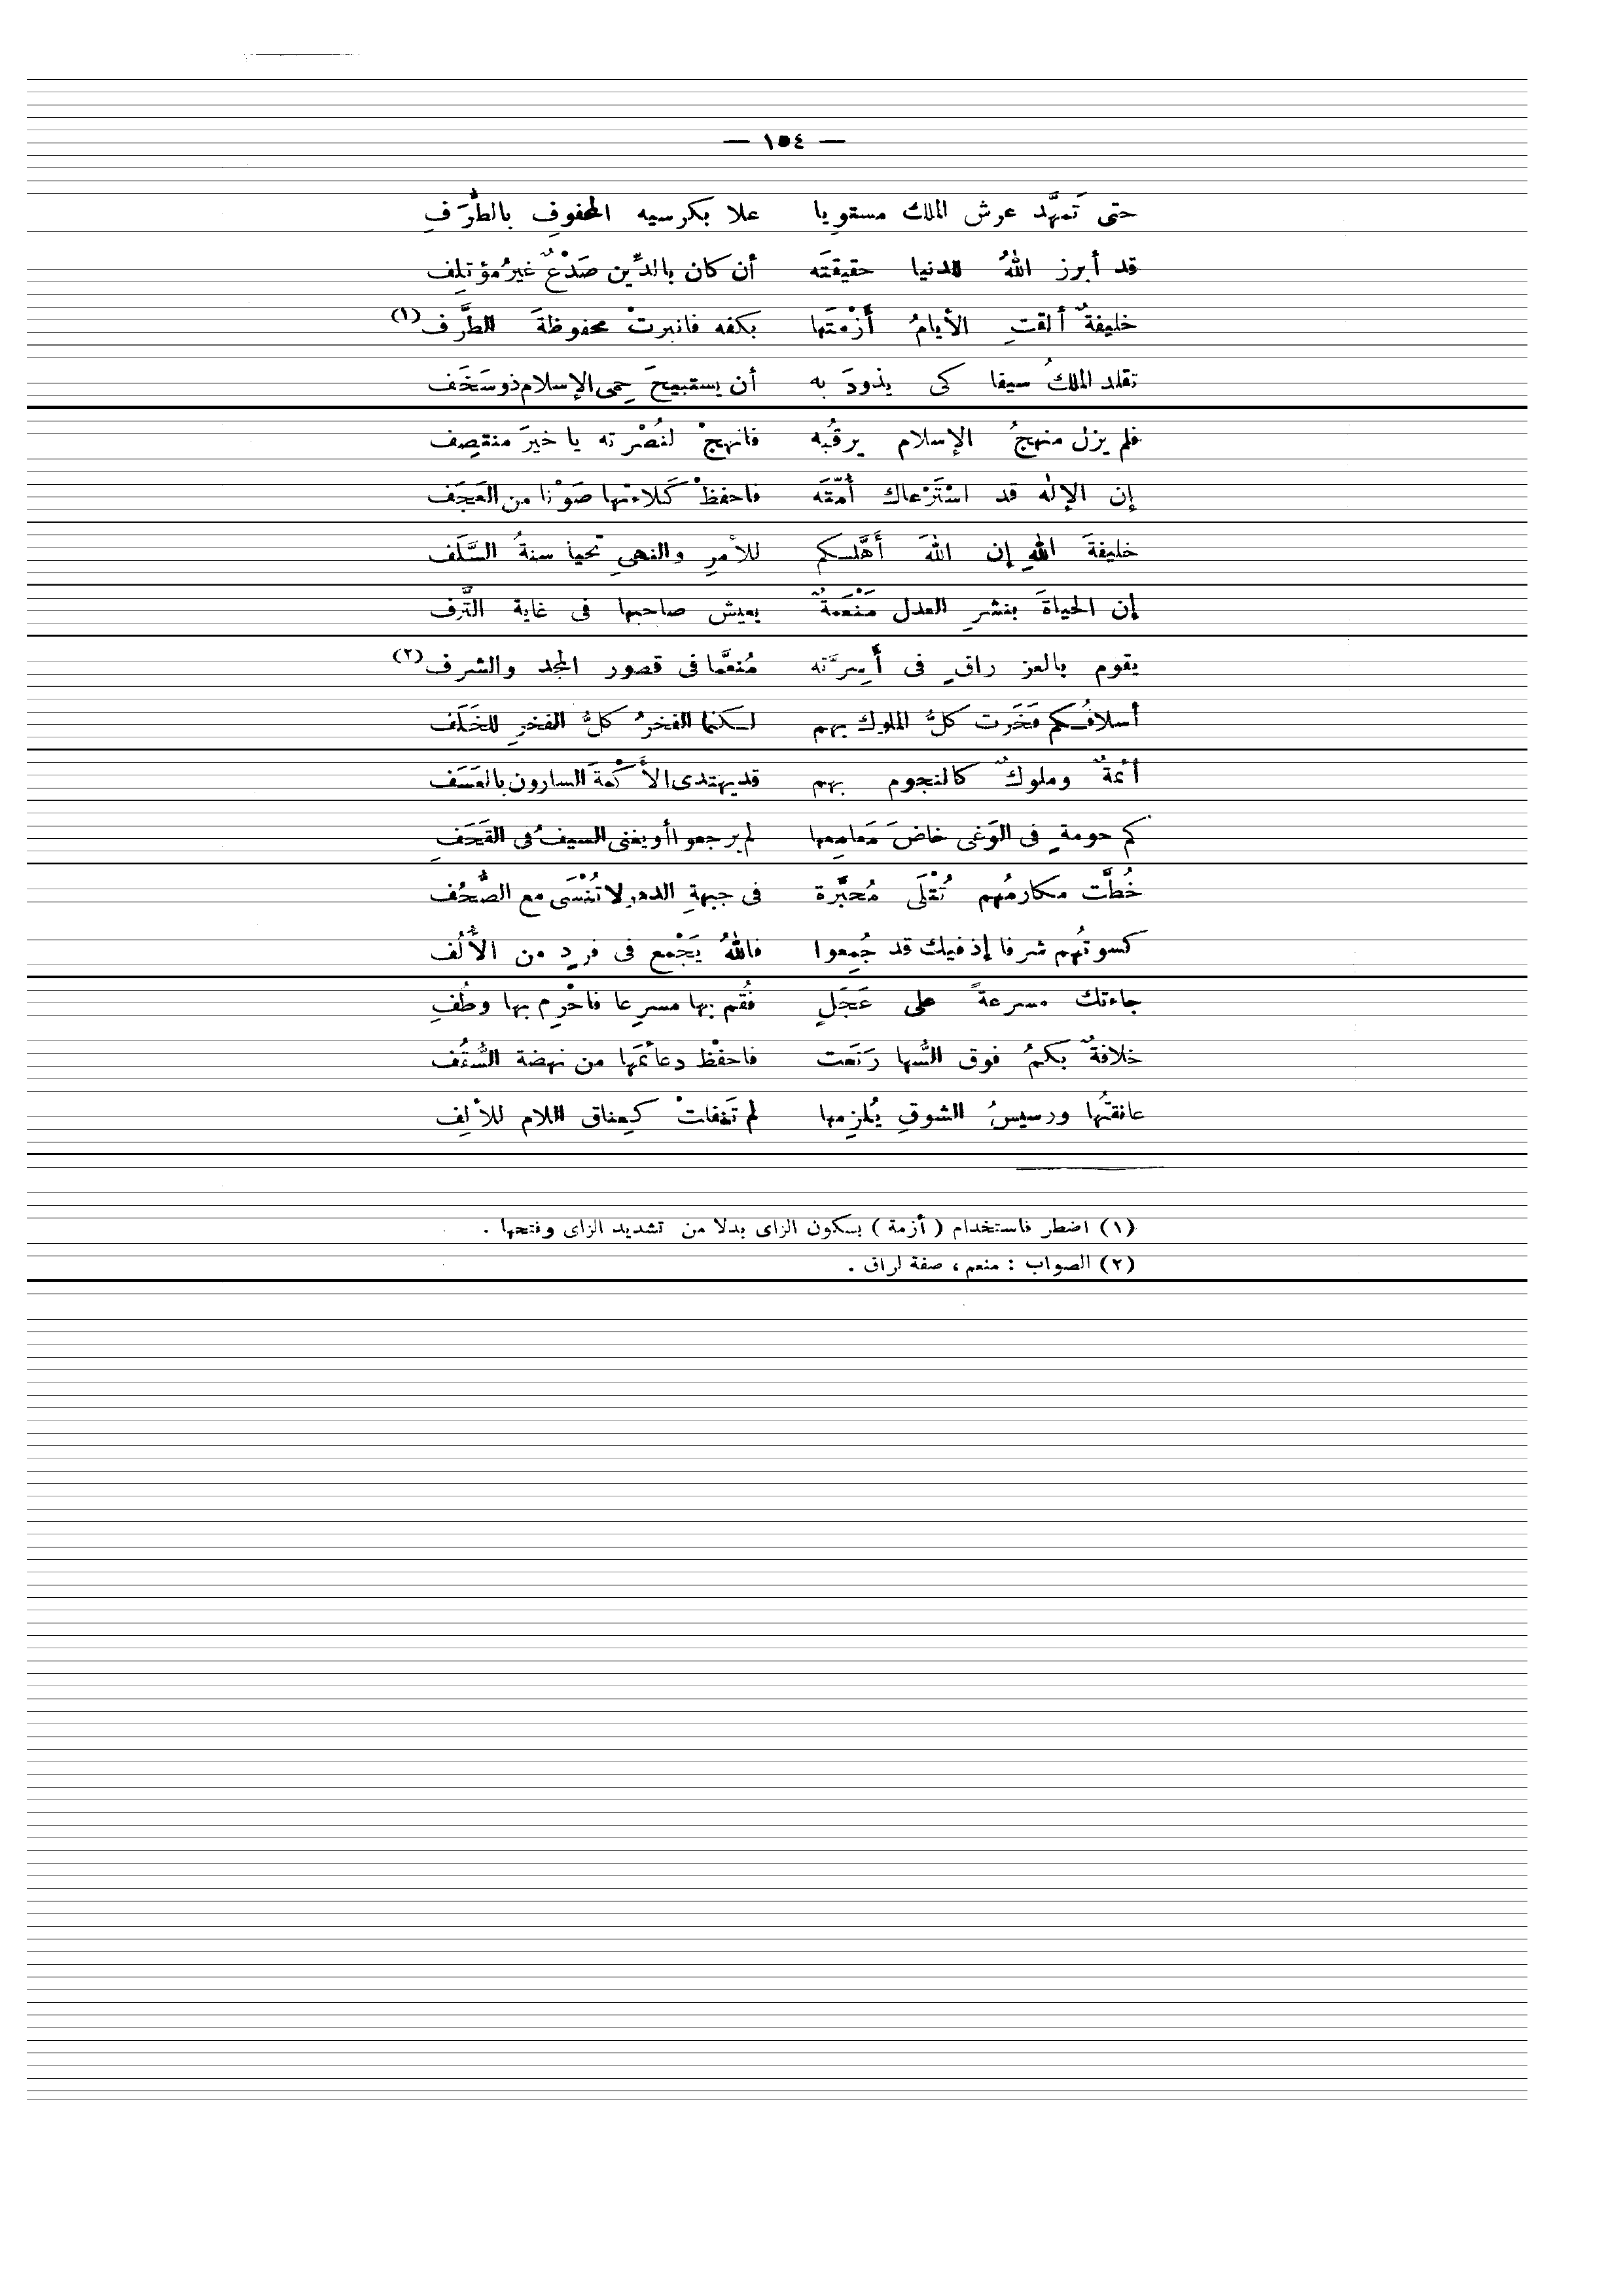 — ١٥٤ —
حتى تَمهَّد عرش الملك مستويا علا بكرسيه المحفوفِ بالطُّرَفِ
قد أبرز اللهُ للدنيا حقيقتَه أن كان بالدِّين صَدْعٌ غيرُ مؤتلِف
خليفةٌ ألقتِ الأيامُ أزْمتَها بكفه فانبرتْ محفوظةَ الطَّرف (١)
تقلد الملكُ سيفا كى يذودَ به أن يستبيحَ حِمى الإسلام ذو سَخَف
فلم يزل منهجُ الإسلام يرقُبه فانهجْ لنُصْرته يا خيرَ منتصِف
إن الإله قد اسْتَرْعاك أُمّتَه فاحفظْ كَلاءتها صَوْنا من العَجَف
خليفةَ اللهِ إن اللهَ أهَّلكم للأمرِ والنهىِ تحيا سنةُ السَّلَف
إن الحياةَ بنشرِ العدل مَنْعَمةٌ يعيش صاحبها فى غاية التَّرف
يقوم بالعز راقٍ فى أسِرَّته مُنعَّما فى قصور المجد والشرف (٢)
أسلافُكم فَخَرت كلُّ الملوك بهم لكنما الفخرُ كلُّ الفخرِ للخَلَف
أئمةٌ وملوكٌ كالنجوم بهم قد يهتدى الأَكْمةَ السارون بالعَسَف
كم حومةٍ فى الوَغى خاضَ مَعامِعها لم يرجعوا أو يغنى السيفُ فى القَحَفِ
خُطَّت مكارمُهم تُتْلَى مُحبَّرة فى جبهةِ الدهرِ لا تُنْسَى مع الصُّحُف
كسوتُهم شرفا إذ فيك قد جُمِعوا فاللهُ يَجْمع فى فردٍ من الأُلُف
جاءتك مسرعةً على عَجَلٍ فقُم بها مسرِعا فاحْرِم بها وطُفِ
خلافةٌ بكمُ فوق السُّها رَتَعت فاحفْظ دعائمَها من نهضة السُّقُف
عانقتُها ورسيسُ الشوقِ يُلزِمها لم تَنفلتْ كعِناق اللام للألِف
(١) اضطر فاستخدام ( أزمة ) بسكون الزاى بدلا من تشديد الزاى وفتحها .
(٢) الصواب : منعم ، صفة لراق .